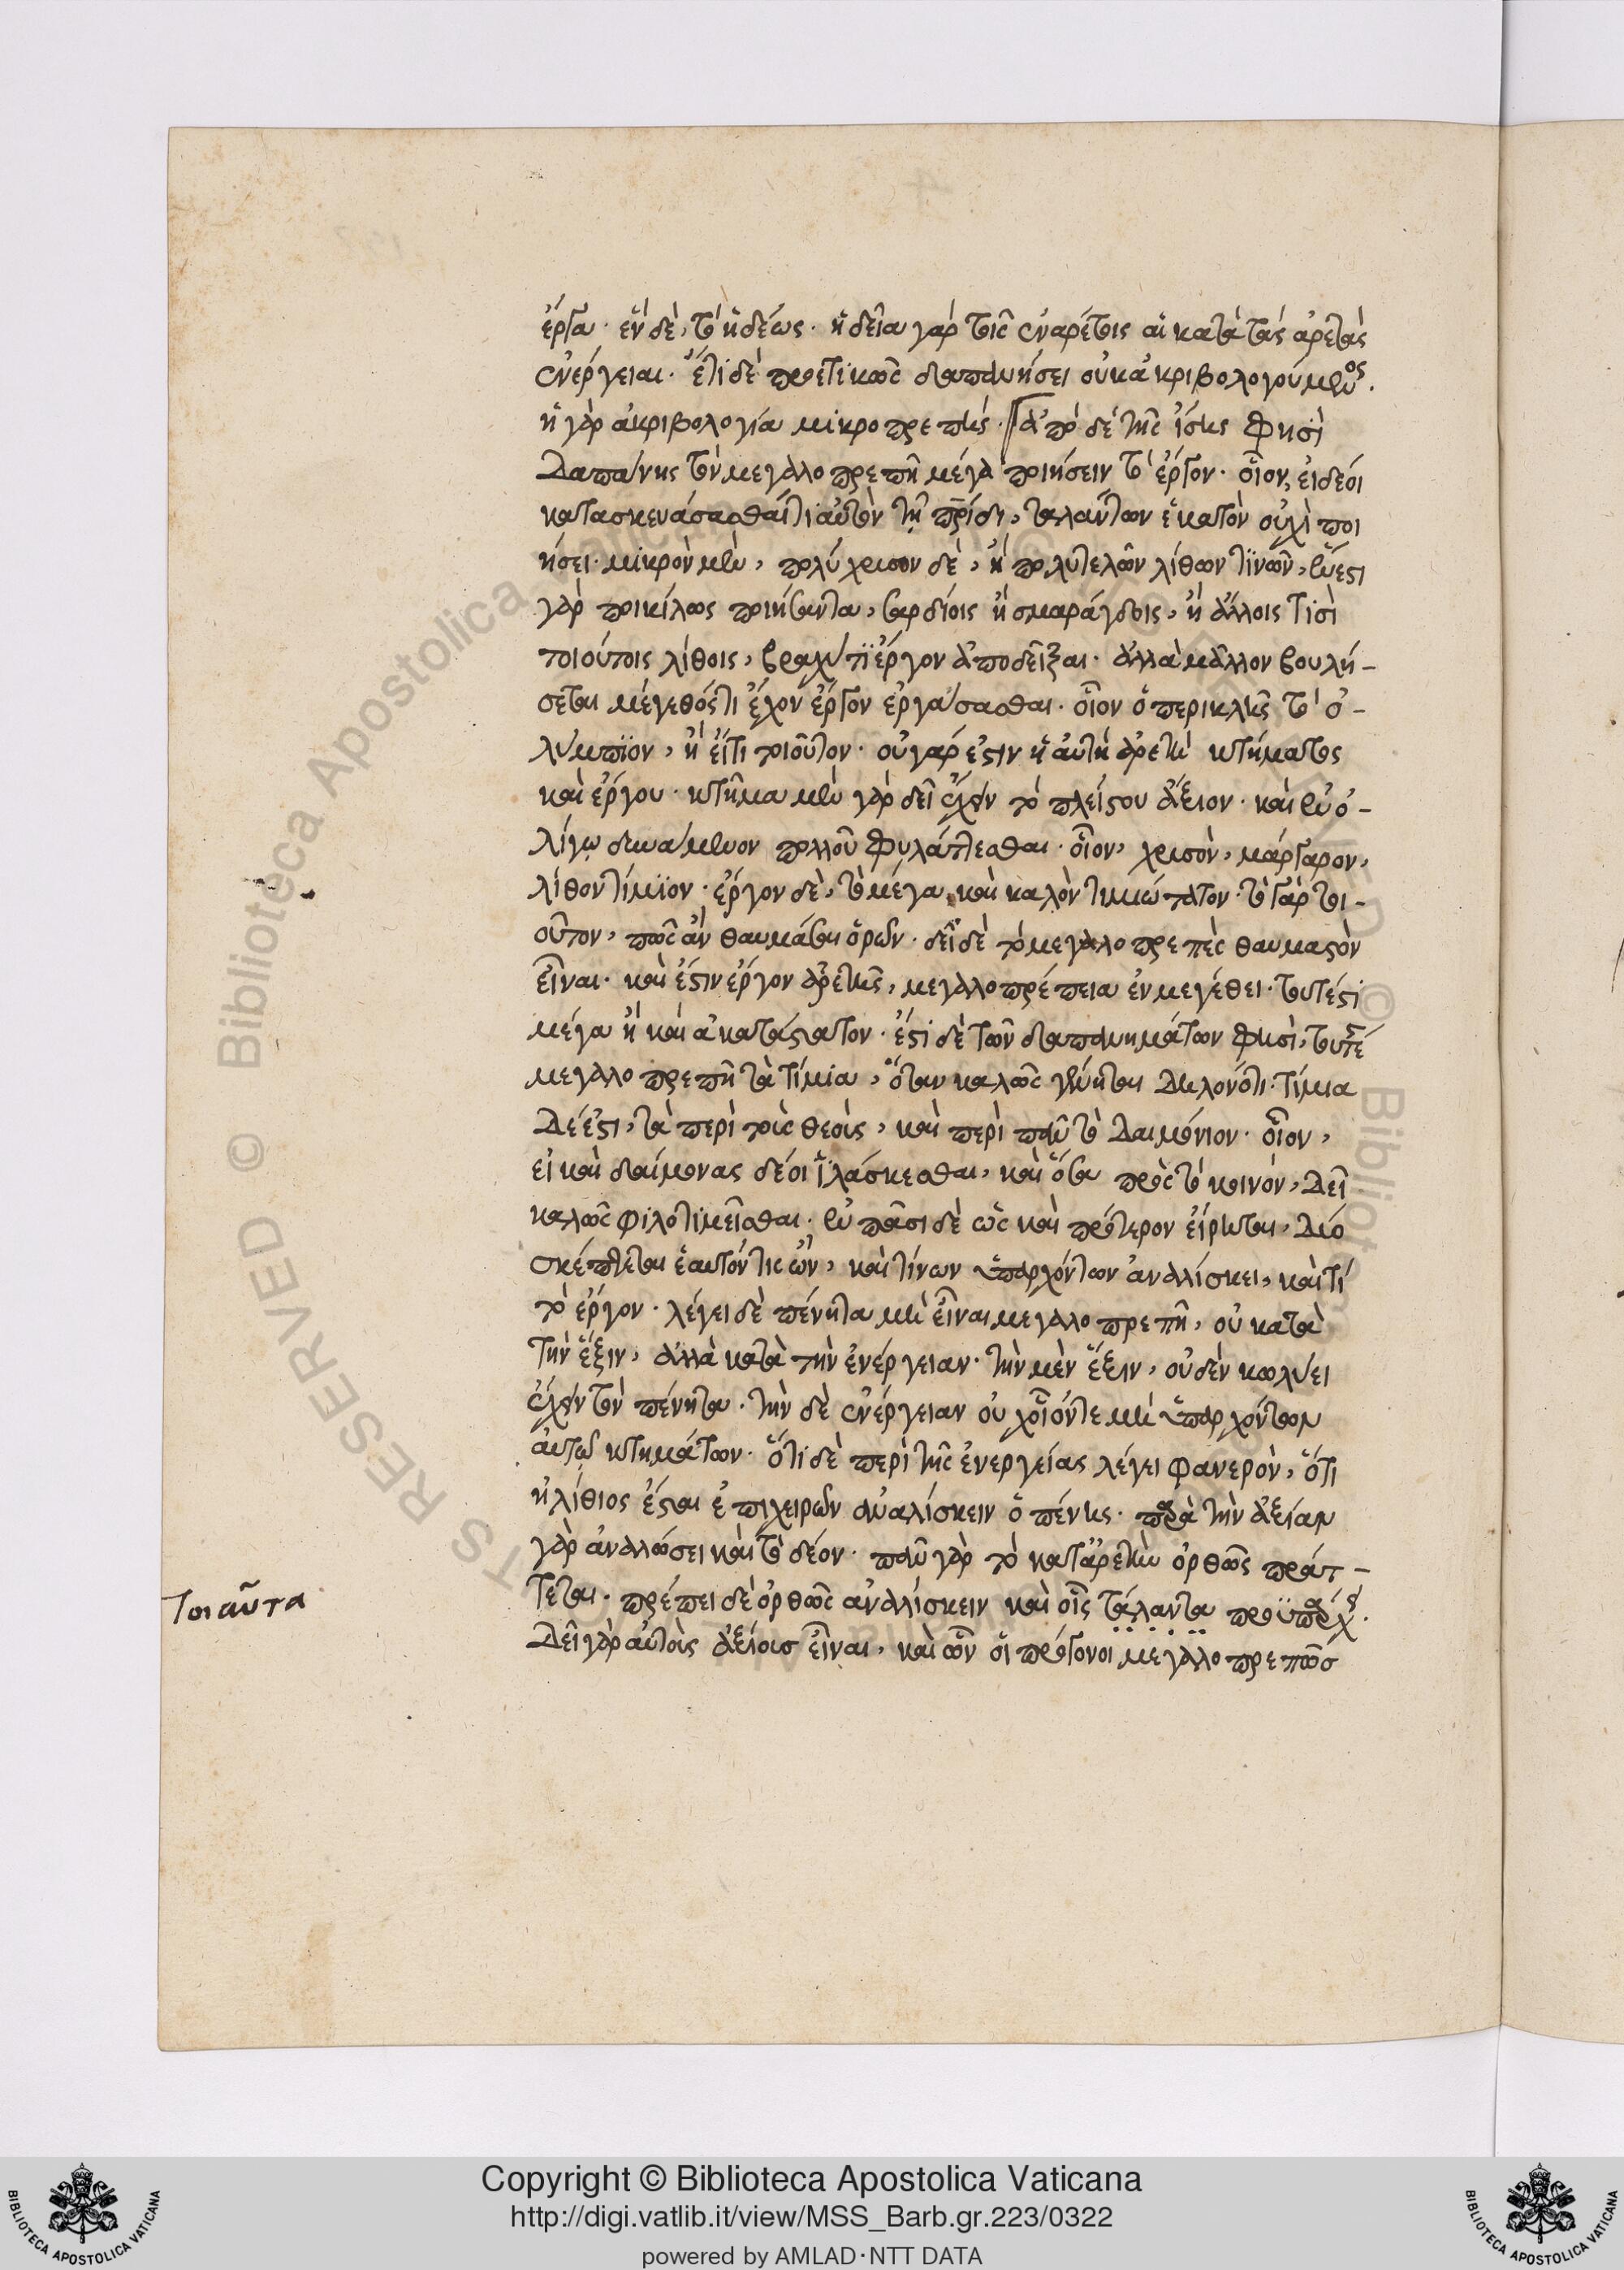 ἔργα. ἓν δὲ, τὸ ἡδέως. ἡδεῖαι γὰρ τοῖς ἐναρέτοις αἱ κατὰ τὰς ἀρετὰς
ἐνέργειαι. ἔτι δὲ προετικῶς δαπανήσει οὐκ ἀκριβολογούμενος.
ἡ γὰρ ἀκριβολογία μικροπρεπής. ἀπὸ δὲ τῆς ἴσης φησὶ
δαπάνης τὸν μεγαλοπρεπῆ μέγα ποιήσειν τὸ ἔργον. οἷον, εἰ δέοι
κατασκευάσασθαί τι αὐτὸν τῇ πρίδι, ταλάντων ἑκατὸν οὐχὶ ποι
ήσει μικρὸν μὲν, πολύχρυσον δὲ, ἢ πολυτελῶν λίθων τινῶν, ἔνεστι
γὰρ ποικίλως ποιήσαντα, σαρδίοις ἢ σμαράγδοις, ἢ ἄλλοις τισὶ
τοιούτοις λίθοις, βραχύ τι ἔργον ἀποδεῖξαι. ἀλλὰ μᾶλλον βουλή-
σεται μέγεθός τι ἔχον ἔργον ἐργάσασθαι. οἷον ὁ περικλῆς τὸ ὀ-
λύμπιον, ἢ εἴ τι τοιοῦτον. οὐ γάρ ἐστιν ἡ αὐτὴ ἀρετὴ κτήματος
καὶ ἔργου. κτῆμα μὲν γὰρ δεῖ ἔχειν τὸ πλείστου ἄξιον. καὶ ἐν ὀ-
λίγῳ δυνάμενον πολλοῦ φυλάττεσθαι. οἷον, χρυσὸν, μάργαρον,
λίθον τίμιον. ἔργον δὲ, τὸ μέγα καὶ καλὸν τιμιώτατον. τὸ γὰρ τοι-
οῦτον, πῶς ἂν θαυμάσαι ὁρῶν. δεῖ δὲ τὸ μεγαλοπρεπὲς θαυμαστὸν
εἶναι. καὶ ἔστιν ἔργον ἀρετῆς, μεγαλοπρέπεια ἐν μεγέθει. τουτέστι
μέγα ἢ καὶ ἀκατάστατον. ἔστι δὲ τῶν δαπανημάτων φησὶ, τουτέστι
μεγαλοπρεπῆ τὰ τίμια, ὅταν καλῶς γένηται δηλονότι. τίμια
δέ ἐστι, τὰ περὶ τοὺς θεοὺς, καὶ περὶ πᾶν τὸ δαιμόνιον. οἷον,
εἰ καὶ δαίμονας δέοι ἱλάσκεσθαι, καὶ ὅσα πρὸς τὸ κοινόν, δεῖ
καλῶς φιλοτιμεῖσθαι. ἐν πᾶσι δὲ ὡς καὶ πρότερον εἴρηται, διό
σκέπτεται ἑαυτόν τις ὢν, καὶ τίνων ὑπαρχόντων ἀναλίσκει, καὶ τί
τὸ ἔργον. λέγει δὲ πένητα μὴ εἶναι μεγαλοπρεπῆ, οὐ κατὰ
τὴν ἕξιν, ἀλλὰ κατὰ τὴν ἐνέργειαν. τὴν μὲν ἕξιν, οὐδὲν κωλύει
ἔχειν τὸν πένητα. τὴν δὲ ἐνέργειαν οὐχ οἷόν τε μὴ ὑπαρχόντων
αὐτῷ κτημάτων. ὅτι δὲ περὶ τῆς ἐνεργείας λέγει φανερὸν, ὅτι
ἠλίθιος ἔσται ἐπιχειρῶν ἀναλίσκειν ὁ πένης. παρὰ τὴν ἀξίαν
γὰρ ἀναλώσει καὶ τὸ δέον. πᾶν γὰρ τὸ κατ' ἀρετὴν ὀρθῶς πράτ-
τεται. πρέπει δὲ ὀρθῶς ἀναλίσκειν καὶ οἷς τάλαντα προϋπάρχει.
δεῖ γὰρ αὐτοὺς ἀξίους εἶναι, καὶ ὧν οἱ πρόγονοι μεγαλοπρεπῶς
τοιαῦτα